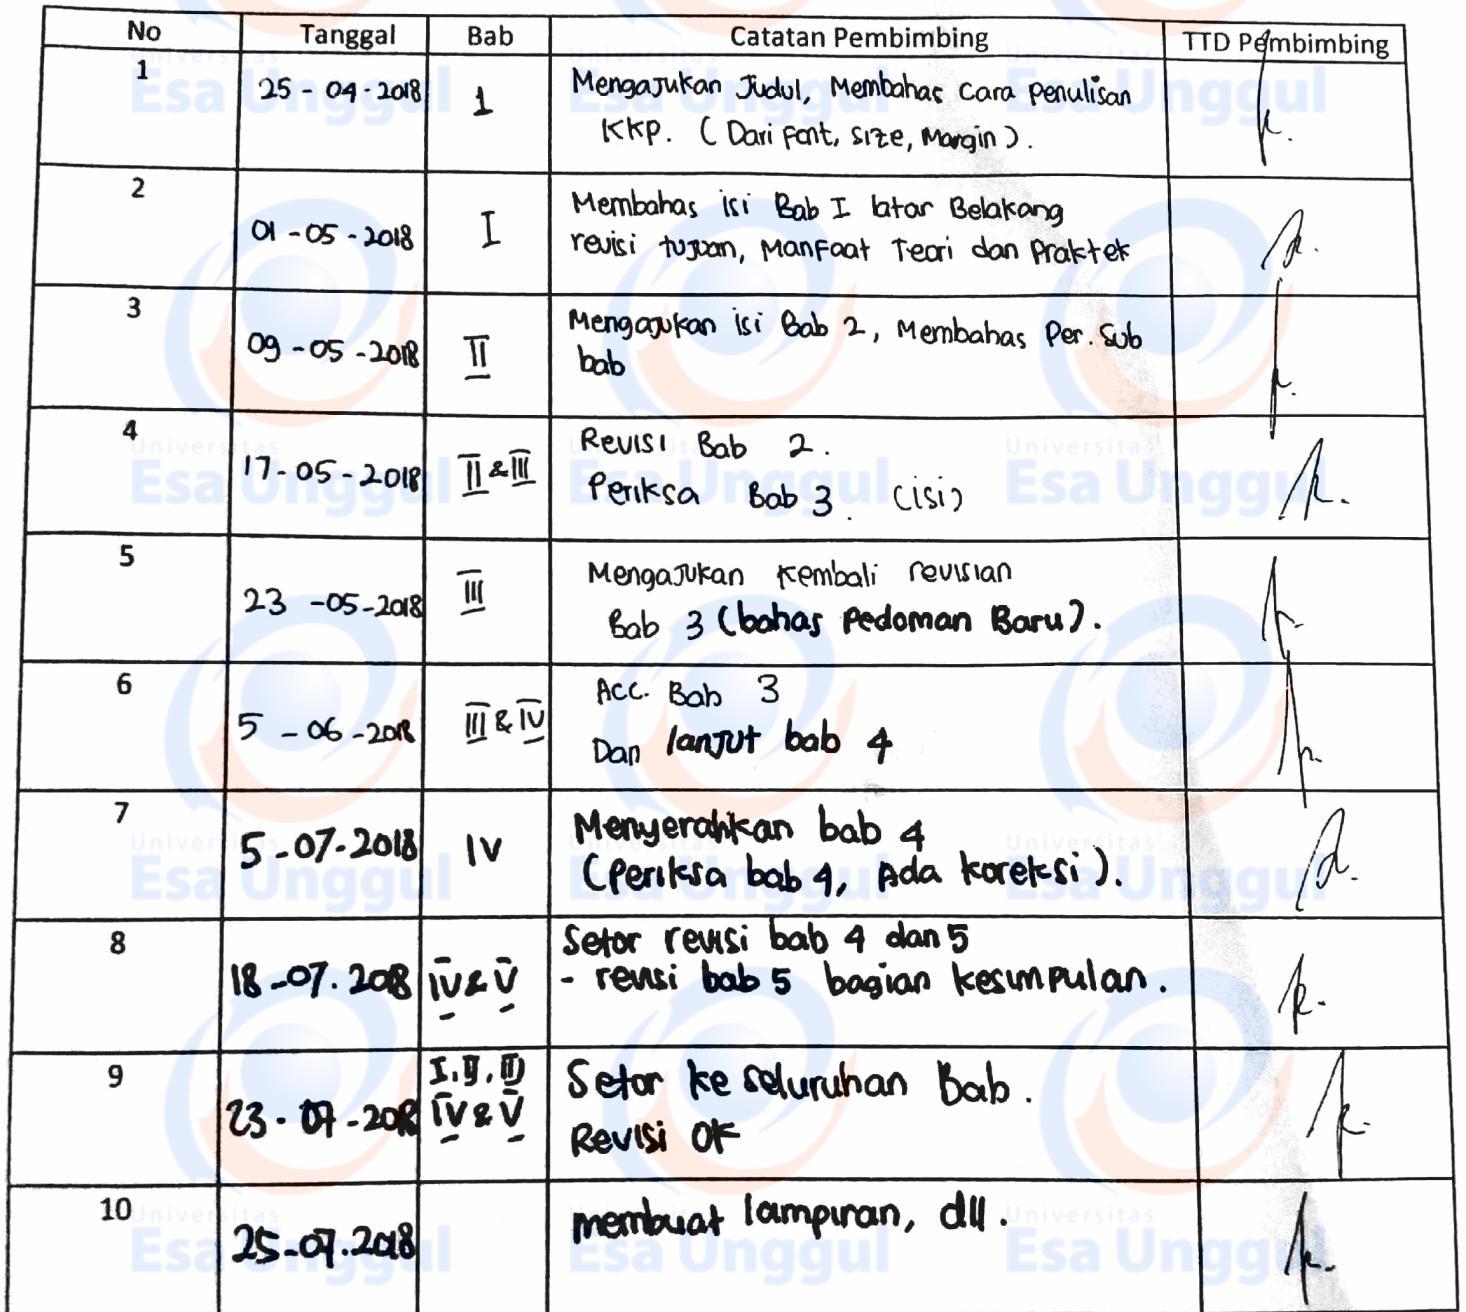 No Tanggal Bab Catatan Pembimbing TTD Pembimbing
1 25 - 04 - 2018 1 Mengajukan Judul, Membahas Cara Penulisan
KKP. (Dari Font, Size, Margin).
2 01 - 05 - 2018 I Membahas isi Bab I latar Belakang
revisi tujuan, Manfaat Teori dan Praktek
3 09 - 05 - 2018 II Mengajukan isi Bab 2, Membahas Per. Sub
bab
4 17 - 05 - 2018 II & III Revisi Bab 2.
Periksa Bab 3. (isi)
5 23 - 05 - 2018 III Mengajukan Kembali revisian
Bab 3 (bahas Pedoman Baru).
6 5 - 06 - 2018 III & IV Acc. Bab 3
Dan lanjut bab 4
7 5 - 07 - 2018 IV Menyerahkan bab 4
(Periksa bab 4, Ada koreksi).
8 18 - 07. 2018 IV & V Setor revisi bab 4 dan 5
- revisi bab 5 bagian kesimpulan.
9 23 - 07 - 2018 I, II, III
IV & V Setor ke seluruhan Bab.
Revisi OK
10 25 - 07. 2018 membuat lampiran, dll.
Universitas
Esa Unggul